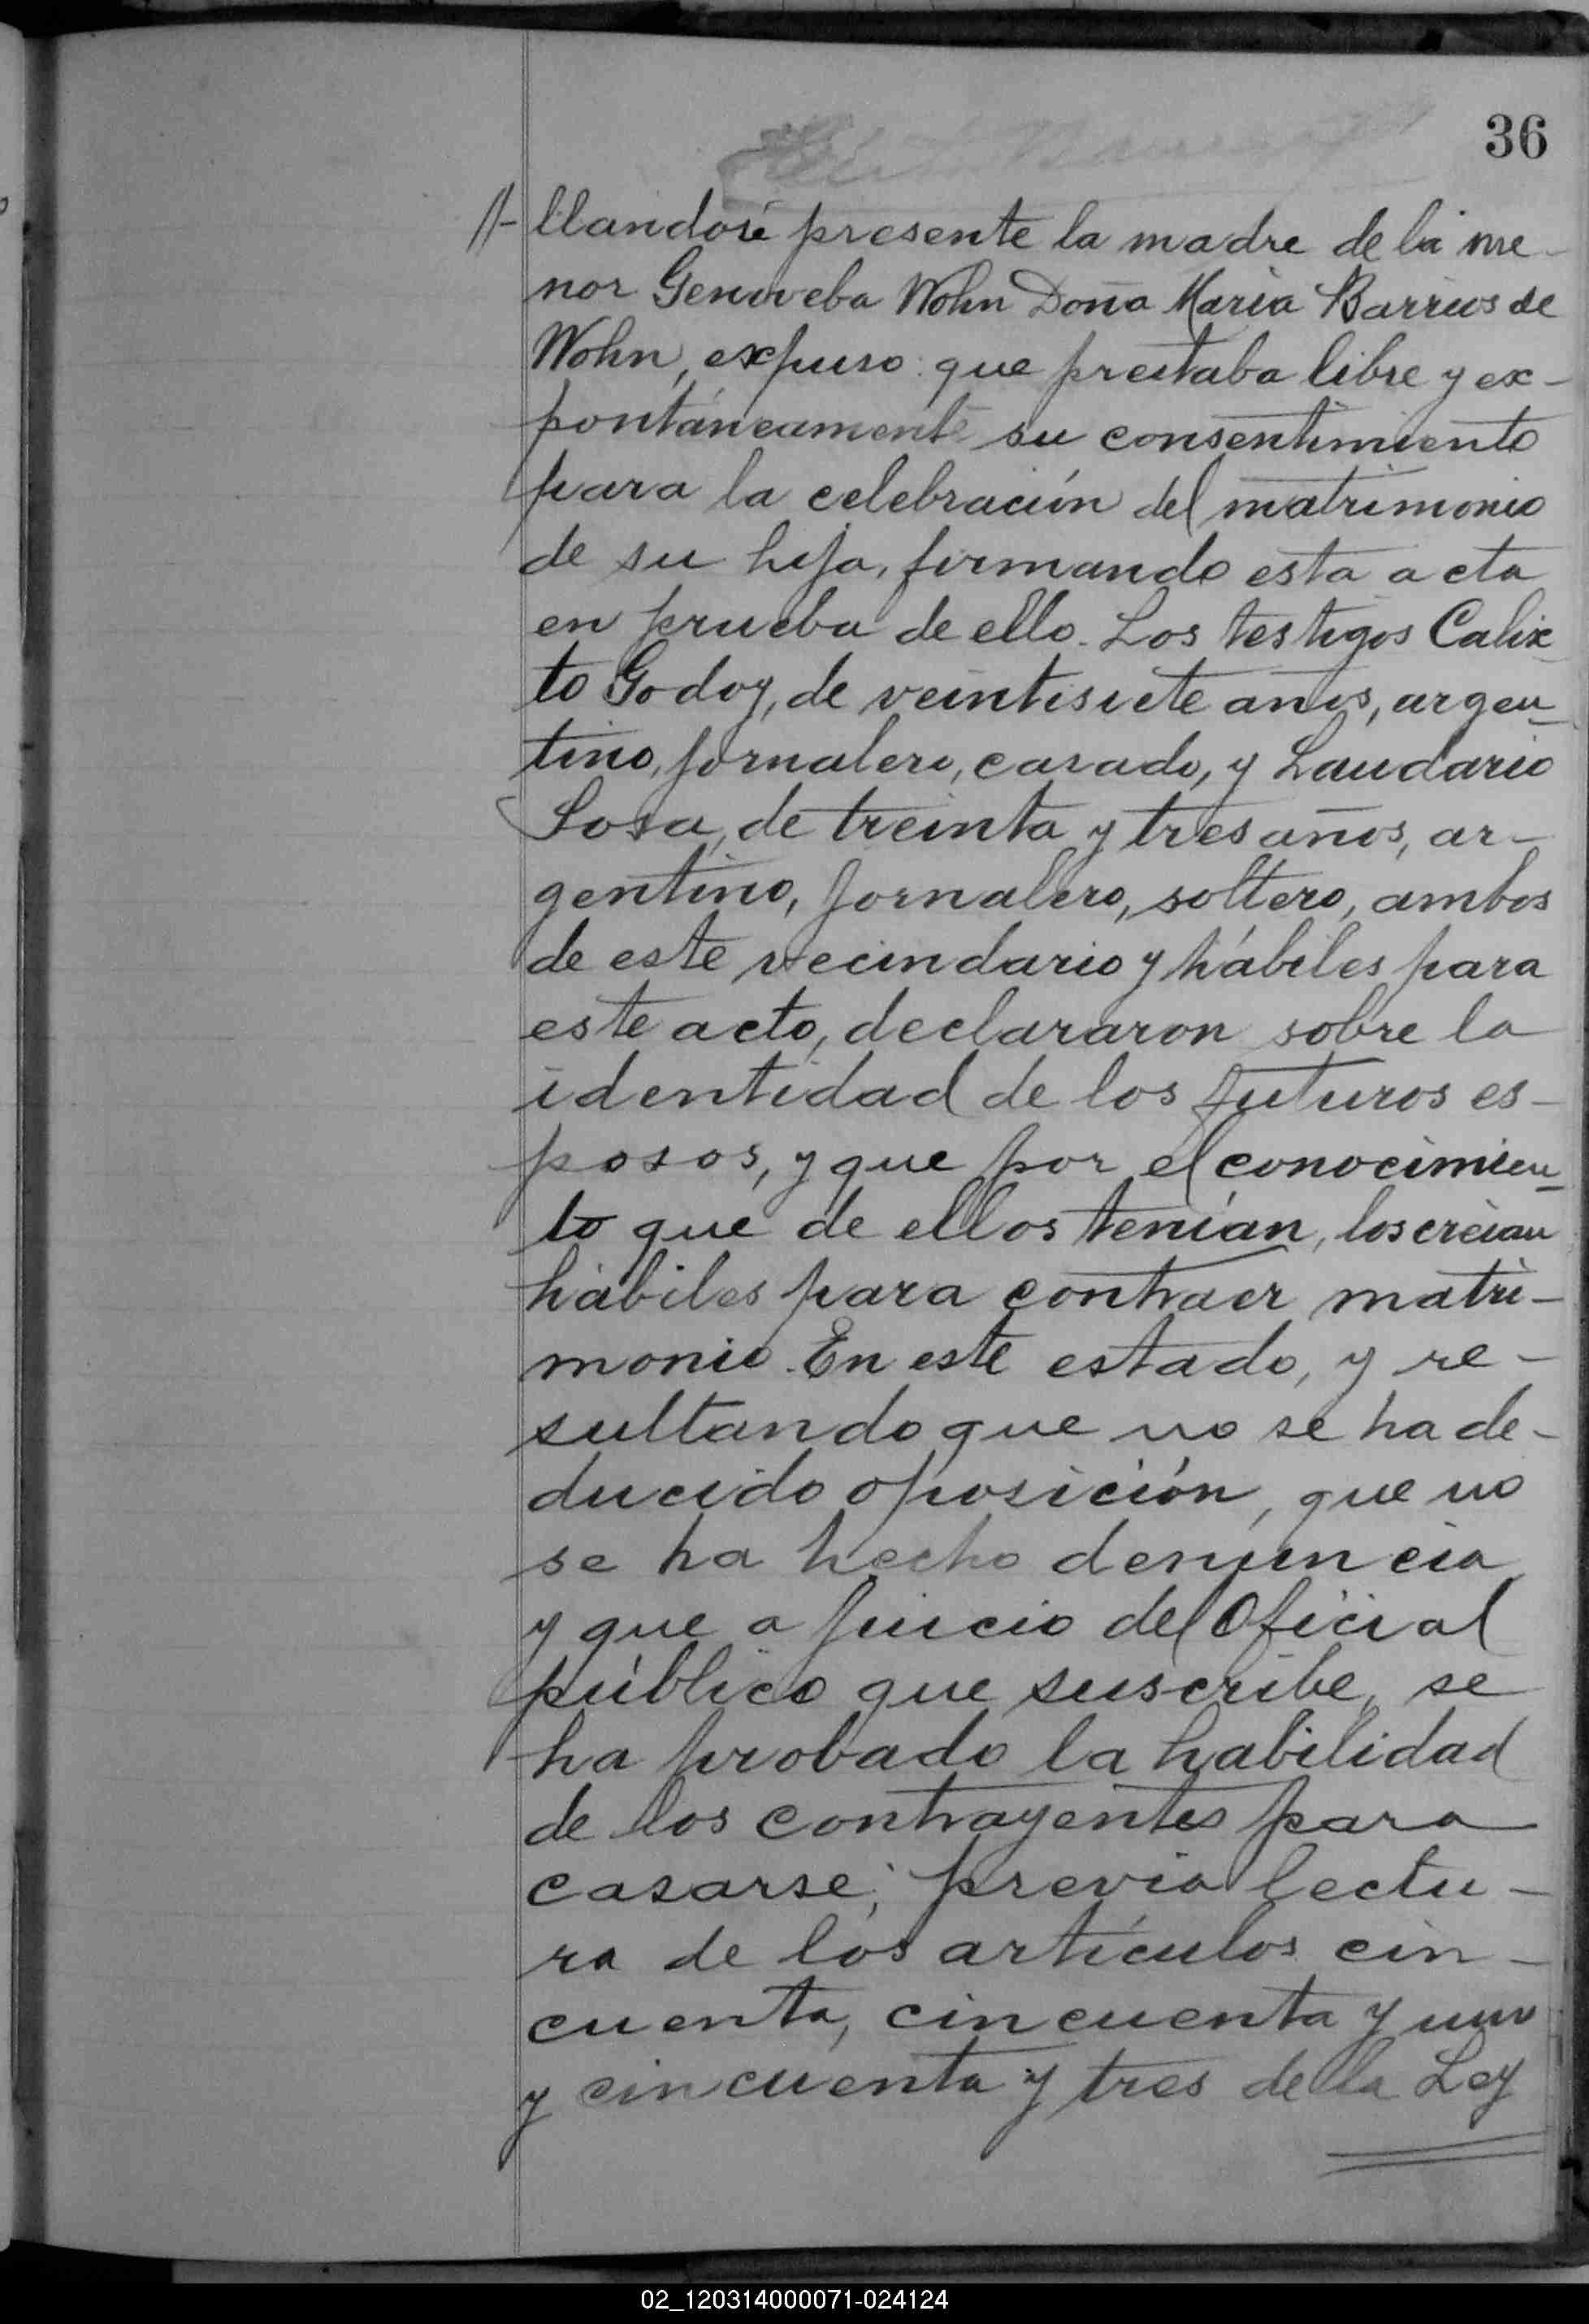 36
llandose presente la madre de la me-
nor Genoveba Wohn Doña María Barrios de
Wohn, expuso: que prestaba libre y ex-
pontáneamente su consentimiento
para la celebración del matrimonio
de su hija, firmando esta acta
en prueba de ello. Los testigos Calix
to Godoy, de veintisiete años, argen-
tino, jornalero, casado, y Laudario
Sosa, de treinta y tres años, ar-
gentino, jornalero, soltero, ambos
de este vecindario y hábiles para
este acto, declararon sobre la
identidad de los futuros es-
posos, y que por el conocimien-
to que de ellos tenían, los creían
hábiles para contraer matri-
monio. En este estado, y re-
sultando que no se ha de-
ducido oposición, que no
se ha hecho denuncia,
y que a juicio del Oficial
público que suscribe, se
ha probado la habilidad
de los contrayentes para
casarse; previa lectu-
ra de los artículos cin-
cuenta, cincuenta y uno
y cincuenta y tres de la Ley
02_120314000071-024124